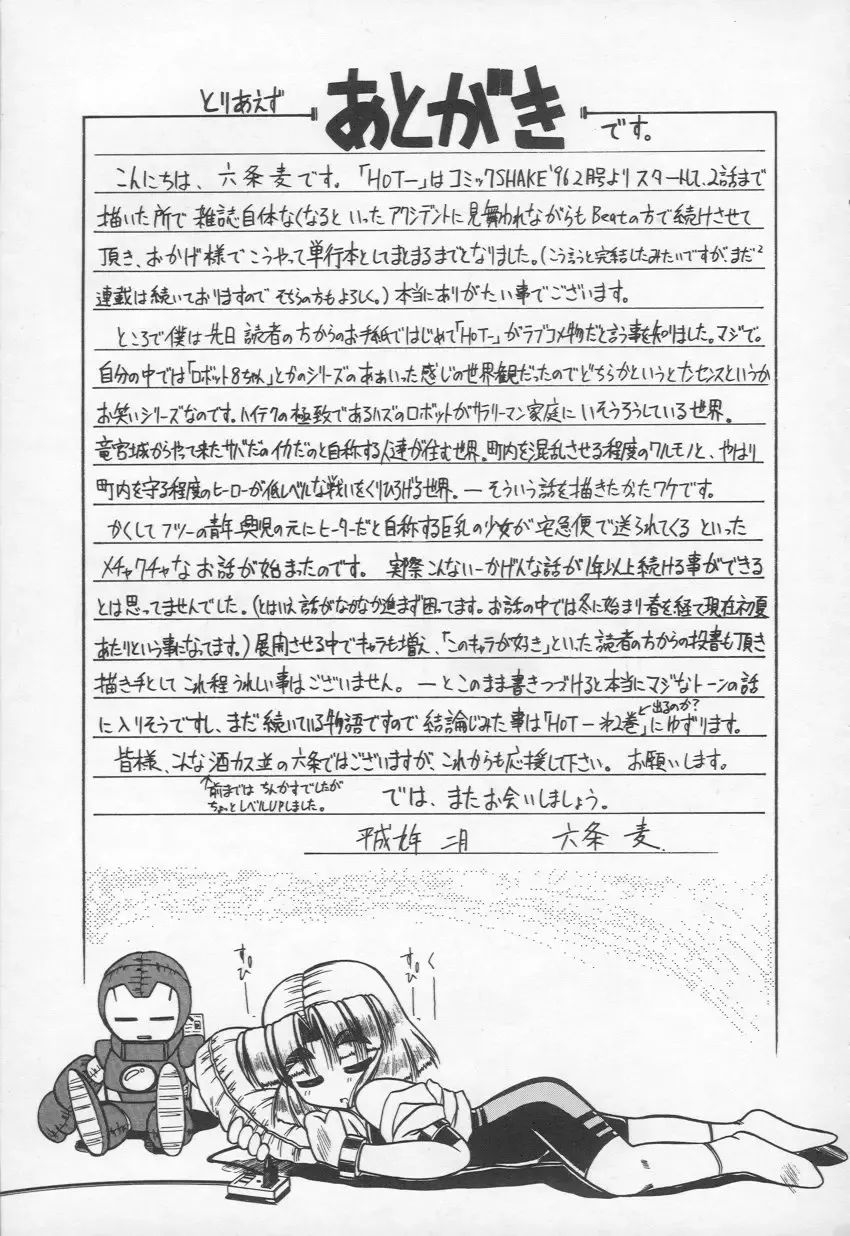 とりあえず
あとがき
です。
こんにちは、六条麦です。「HOT―」はコミックSHAKE'96 2月号よりスタートして、2話まで
描いた所で雑誌自体なくなるといったアクシデントに見舞われながらもBeatの方で続けさせて
頂き、おかげ様でこうやって単行本としてまとまるまでとなりました。(こう言うと完結したみたいですが、まだ2
連載は続いておりますのでそちらの方もよろしく。)本当にありがたい事でございます。
ところで僕は先日読者の方からのお手紙ではじめて「HOT-」がラブコメ物だと言う事を知りました。マジで。
自分の中では「ロボット8ちゃん」とかのシリーズのああいった感じの世界観だったのでどちらかというとナンセンスというか
お笑いシリーズなのです。ハイテクの極致であるハズのロボットがサラリーマン家庭にいそうろうしている世界。
竜宮城からやって来たサバだのイカだのと自称する人達が住む世界。町内を混乱させる程度のワルモノと、やはり
町内を守る程度のヒーローが低レベルな戦いをくりひろげる世界。―そういう話を描きたかたワケです。
かくしてフツーの青年 興児の元にヒーターだと自称する巨乳の少女が宅急便で送られてくるといった
メチャクチャなお話が始まったのです。 実際こんないーかげんな話が1年以上続ける事ができる
とは思ってませんでした。(とはいえ、話がなかなか進まず困ってます。お話の中では冬に始まり春を経て現在初夏
あたりという事になってます。)展開させる中でキャラも増え、「このキャラが好き」といった読者の方からの投書も頂き
描き手としてこれ程うれしい事はございません。―とこのまま書きつづけると本当にマジなトーンの話
に入りそうですし、まだ続いている物語ですので結論じみた事は「HOT―第2巻」にゆずります。
と出るのか?
皆様、こんな酒カス並の六条ではございますが、これからも応援して下さい。お願いします。
↑前まではちんかすでしたが
ちょっとレベルUPしました。
では、またお会いしましょう。
平成九年 二月 六条 麦.
すぴ――
すぴ――
く――